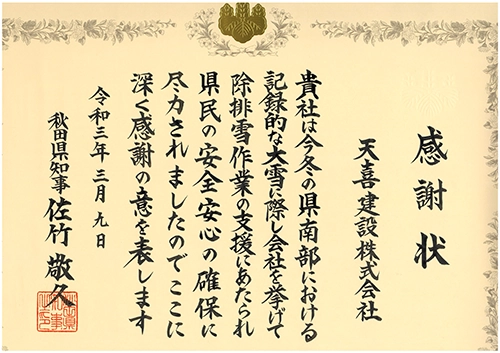 感謝状
天喜建設株式会社
貴社は今冬の県南部における
記録的な大雪に際し会社を挙げて
除排雪作業の支援にあたられ
県民の安全安心の確保に
尽力されましたのでここに
深く感謝の意を表します
令和三年三月九日
秋田県知事 佐竹敬久